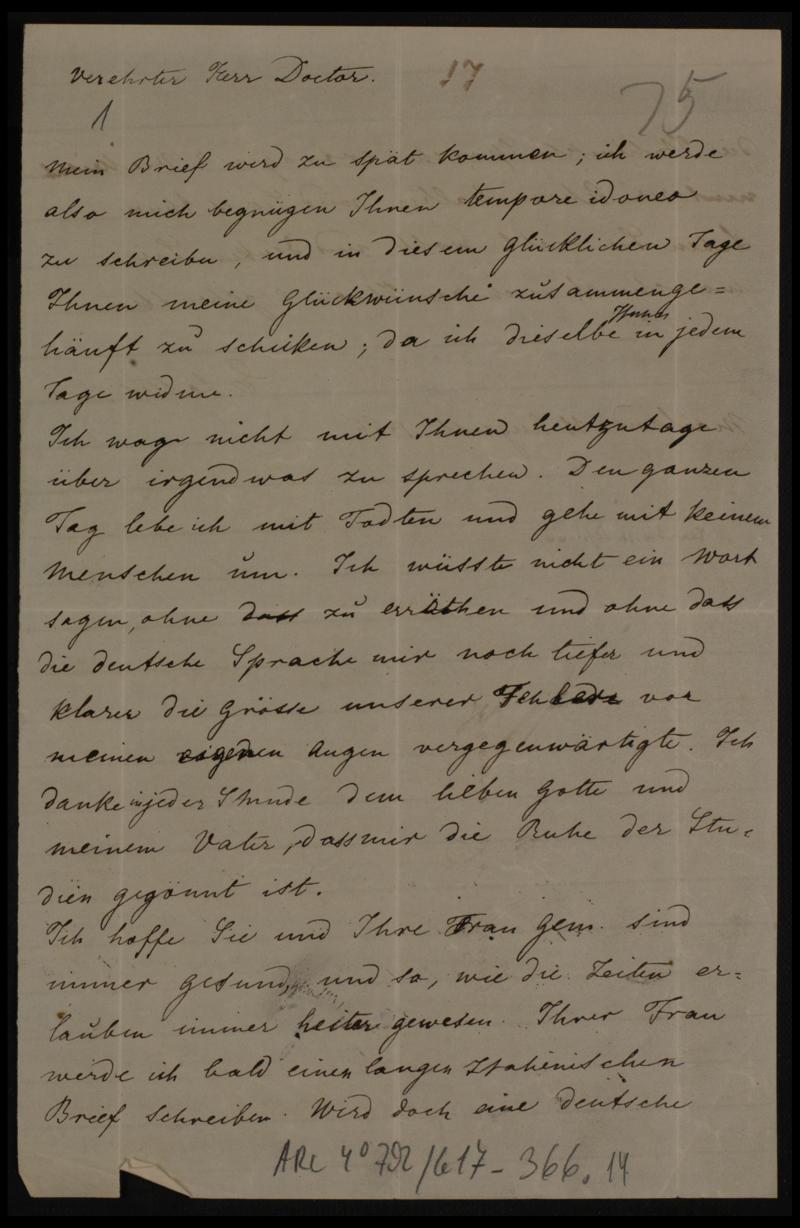 Verehrter Herr Doctor.
17
75
1
Mein Brief wird zu spät kommen; ich werde
also mich begnügen Ihnen tempore idoneo
zu schreiben, und in diesem glücklichen Tage
Ihnen meine Glückwünsche zusammenge=
häuft zu schicken; da ich dieselbe Ihnen in jedem
Tage widme.
Ich wage nicht mit Ihnen heutzutage
über irgendwas zu sprechen. Den ganzen
Tag lebe ich mit Todten und gehe mit keinem
Menschen um. Ich wüsste nicht ein Wort
sagen, ohne dass zu erröthen und ohne dass
die deutsche Sprache mir noch tiefer und
klarer die Grösse unserer vor
meinen eigenen Augen vergegenwärtigte. Ich
danke in jeder Stunde dem lieben Gotte und
meinem Vater, dass mir die Ruhe der Stu=
dien gegönnt ist.
Ich hoffe Sie und Ihre Frau Gem. sind
immer gesund, und so, wie die Zeiten er=
lauben immer heiter gewesen. Ihrer Frau
werde ich bald einen langen Italienischen
Brief schreiben. Wird doch eine deutsche
ARC 4° 792/617-366.14